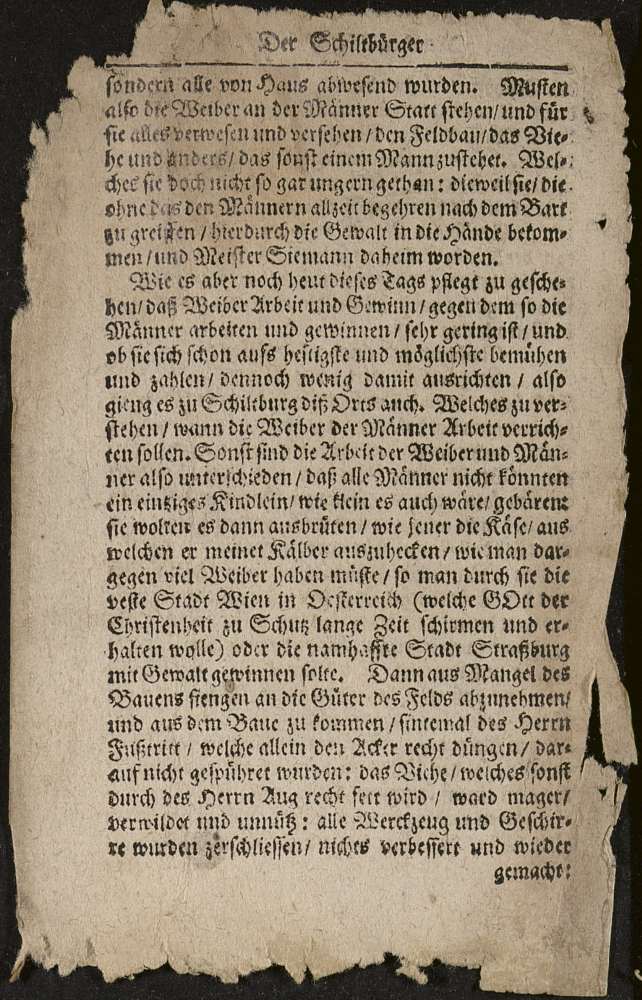 Der Schiltbürger
sondern alle von Haus abwesend wurden. Musten
also die Weiber an der Männer Statt stehen/ und für
sie alles verwesen und versehen / den Feldbau/ das Vie-
he und anders/ das sonst einem Mann zustehet. Wel-
ches sie doch nicht so gar ungern gethan: dieweil sie/ die
ohne das den Männern allzeit begehren nach dem Bart
zu greiffen / hierdurch die Gewalt in die Hände bekom-
men / und Meister Siemann daheim worden.
Wie es aber noch heut dieses Tags pflegt zu gesche-
hen/ daß Weiber Arbeit und Gewinn / gegen dem so die
Männer arbeiten und gewinnen / sehr gering ist / und
ob sie sich schon aufs hefftigste und möglichste bemühen
und zahlen/ dennoch wenig damit ausrichten / also
gieng es zu Schiltburg diß Orts auch. Welches zu ver-
stehen / wann die Weiber der Männer Arbeit verrich-
ten sollen. Sonst sind die Arbeit der Weiber und Män-
ner also unterschieden / daß alle Männer nicht könnten
ein eintziges Kindlein/ wie klein es auch wäre/ gebären:
sie wolten es dann ausbrüten / wie jener die Käse/ aus
welchen er meinet Kälber auszuhecken / wie man dar-
gegen viel Weiber haben müste / so man durch sie die
veste Stadt Wien in Oesterreich (welche GOtt der
Christenheit zu Schutz lange Zeit schirmen und er-
halten wolle) oder die namhaffte Stadt Straßburg
mit Gewalt gewinnen solte. Dann aus Mangel des
Bauens fiengen an die Güter des Felds abzunehmen/
und aus dem Baue zu kommen / sintemal des Herrn
Fußtritt / welche allein den Acker recht düngen / dar-
auf nicht gespühret wurden: das Viehe / welches sonst
durch des Herrn Aug recht fett wird / ward mager/
verwildet und unnütz : alle Werckzeug und Geschir-
re wurden zerschliessen/ nichts verbessert und wieder
gemacht: